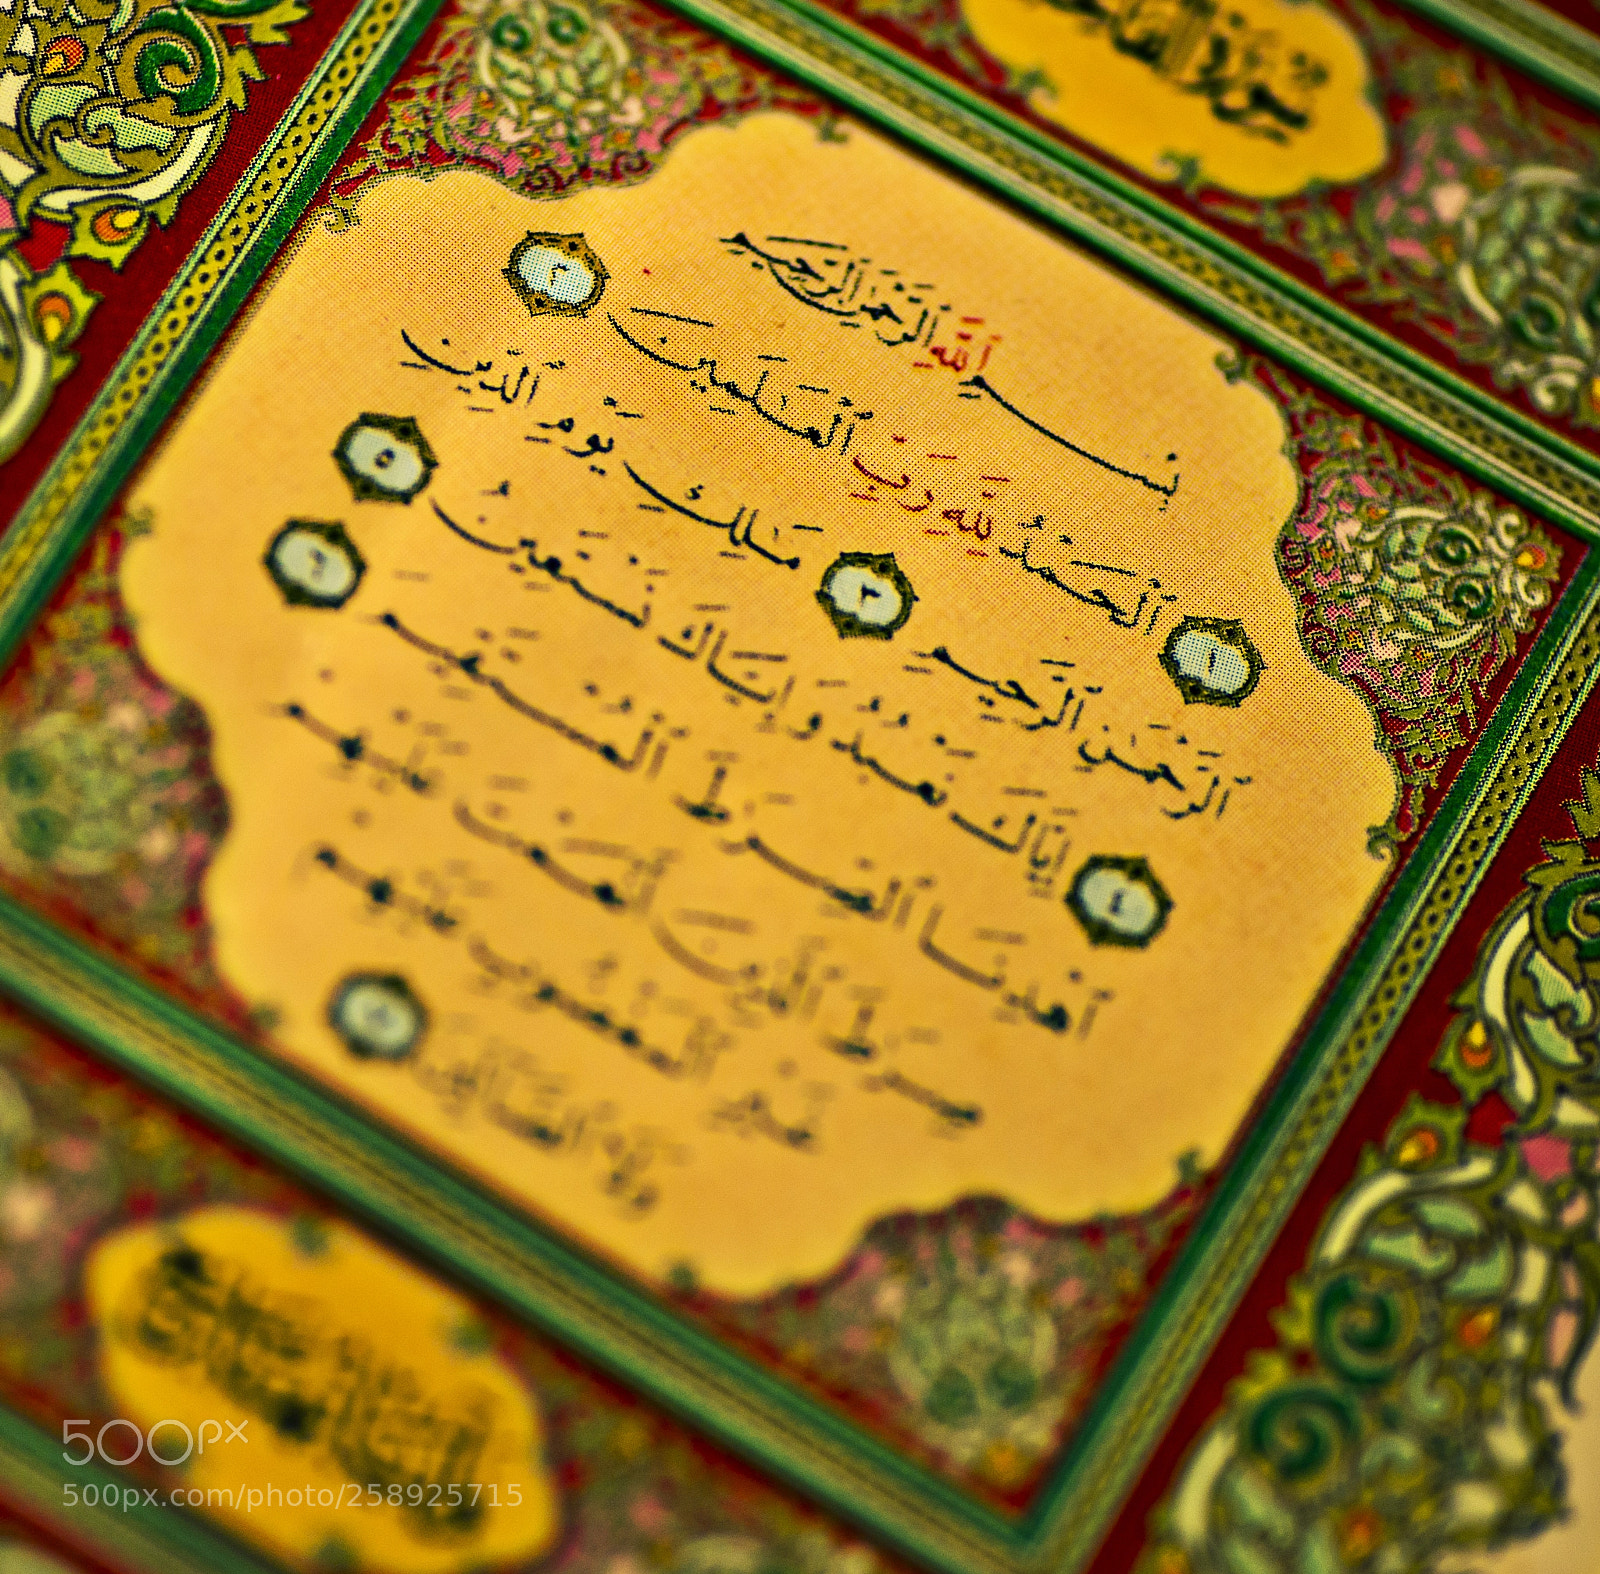 سُورَةُ الفَاتِحَةِ
بِسْمِ ٱللَّهِ ٱلرَّحْمَٰنِ ٱلرَّحِيمِ
١ ٱلْحَمْدُ لِلَّهِ رَبِّ ٱلْعَٰلَمِينَ ٢
ٱلرَّحْمَٰنِ ٱلرَّحِيمِ ٣ مَٰلِكِ يَوْمِ ٱلدِّينِ
٤ إِيَّاكَ نَعْبُدُ وَإِيَّاكَ نَسْتَعِينُ ٥
ٱهْدِنَا ٱلصِّرَٰطَ ٱلْمُسْتَقِيمَ ٦
صِرَٰطَ ٱلَّذِينَ أَنْعَمْتَ عَلَيْهِمْ
غَيْرِ ٱلْمَغْضُوبِ عَلَيْهِمْ
وَلَا ٱلضَّآلِّينَ ٧
500px
500px.com/photo/258925715